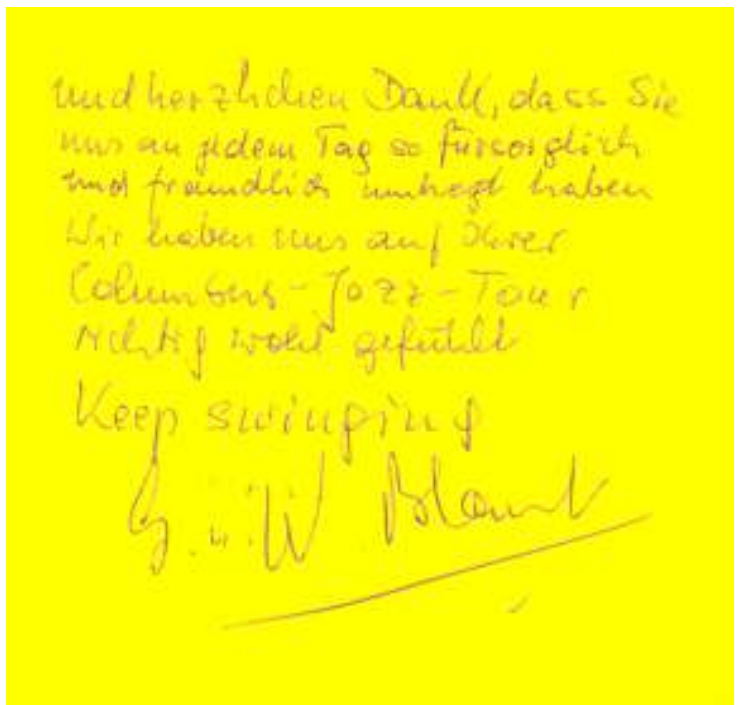 und herzlichen Dank, dass Sie
uns an jedem Tag so fürsorglich
und freundlich umhegt haben
Wir haben uns auf Ihrer
Columbus-Jazz-Tour
richtig wohl gefühlt
Keep swinging
G. u. W.